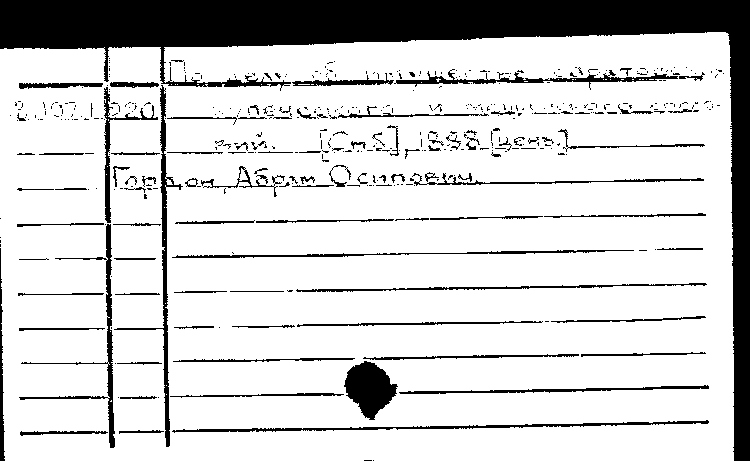 По делу об имуществе саратовско-
купеческого и мещанского сосло-
вий. [Спб], 1888 [ценз.]
Гордон, Абрам Осипович.